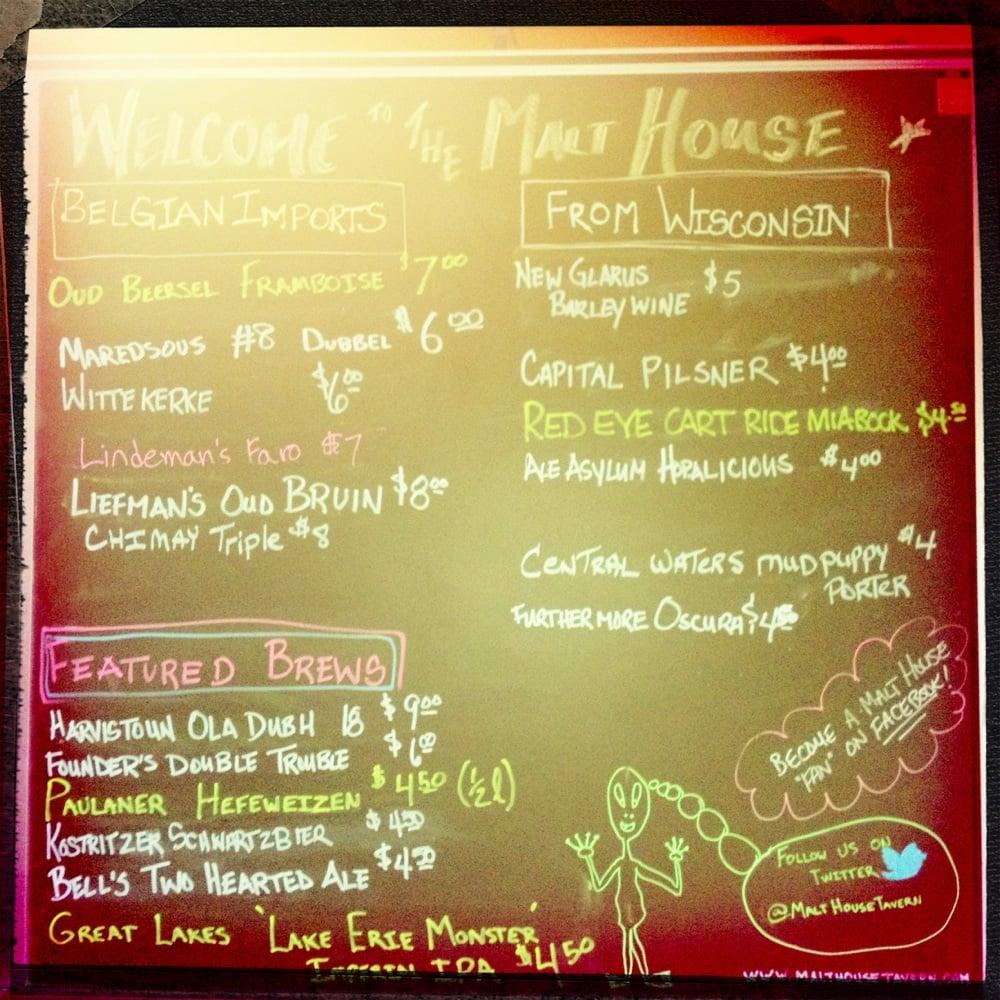 WELCOME TO THE MALT HOUSE
BELGIAN IMPORTS
OUD BEERSEL FRAMBOISE $7.00
MAREDSOUS #8 DUBBEL $6.00
WITTEKERKE $6.00
Lindeman's Faro $7
LIEFMAN'S OUD BRUIN $8.00
CHIMAY Triple $8
FEATURED BREWS
HARVISTOUN OLA DUBH 18 $9.00
FOUNDER'S DOUBLE TROUBLE $6.00
PAULANER HEFEWEIZEN $4.50 (½ l)
KOSTRITZER SCHWARTZBIER $4.50
BELL'S TWO HEARTED ALE $4.50
GREAT LAKES 'LAKE ERIE MONSTER'
IPA $4.50
FROM WISCONSIN
NEW GLARUS
BARLEYWINE $5
CAPITAL PILSNER $4.00
RED EYE CART RIDE MIABOCK $4.50
ALE ASYLUM HOPALICIOUS $4.00
CENTRAL WATERS MUDPUPPY $4
PORTER
FURTHERMORE OSCURA $4.50
BECOME A MALT HOUSE
"FAN" ON FACEBOOK!
FOLLOW US ON
TWITTER
@MALTHOUSETAVERN
WWW.MALTHOUSETAVERN.COM